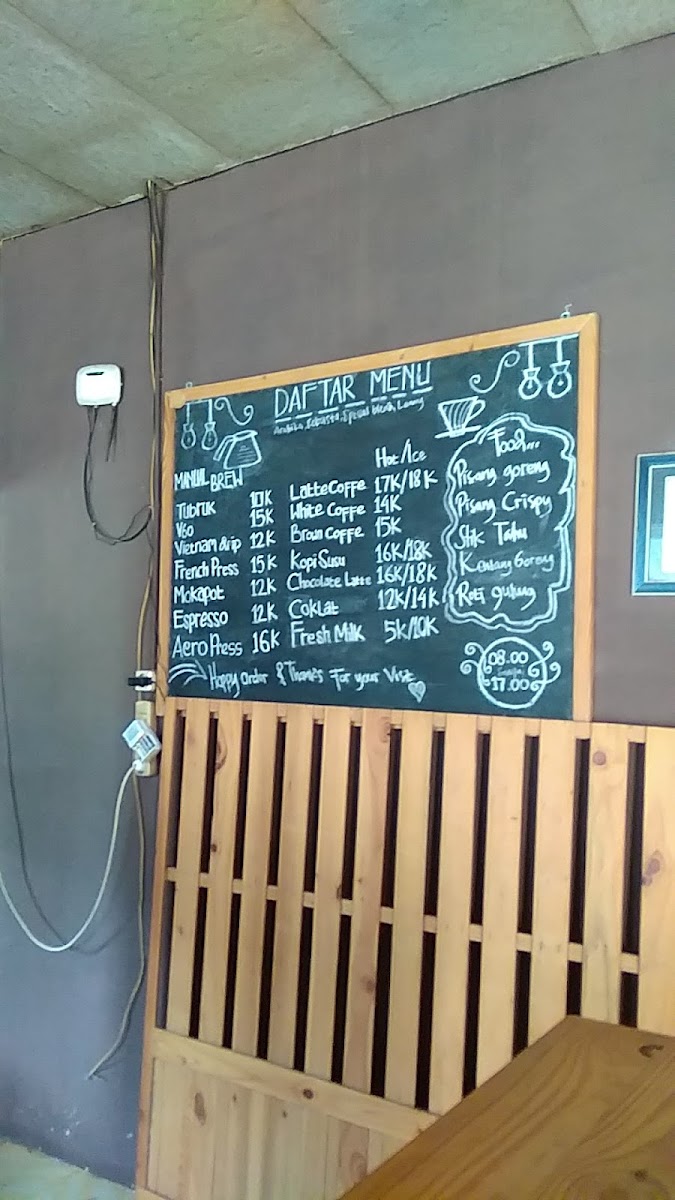 DAFTAR MENU
Arabika, Robusta, Spesial blend, Lanny
MANUAL BREW
Tubruk 10K
V60 15K
Vietnam drip 12K
French Press 15K
Mokapot 12K
Espresso 12K
Aero Press 16K
Hot/Ice
Latte Coffe 17K/18K
White Coffe 14K
Broun Coffe 15K
Kopi Susu 16K/18K
Chocolate Latte 16K/18K
Coklat 12K/14K
Fresh Milk 5K/10K
Food...
Pisang goreng
Pisang Crispy
Stik Tahu
Kentang Goreng
Roti gulung
08.00
Sampai
17.00
Happy order & Thanks For your Visit